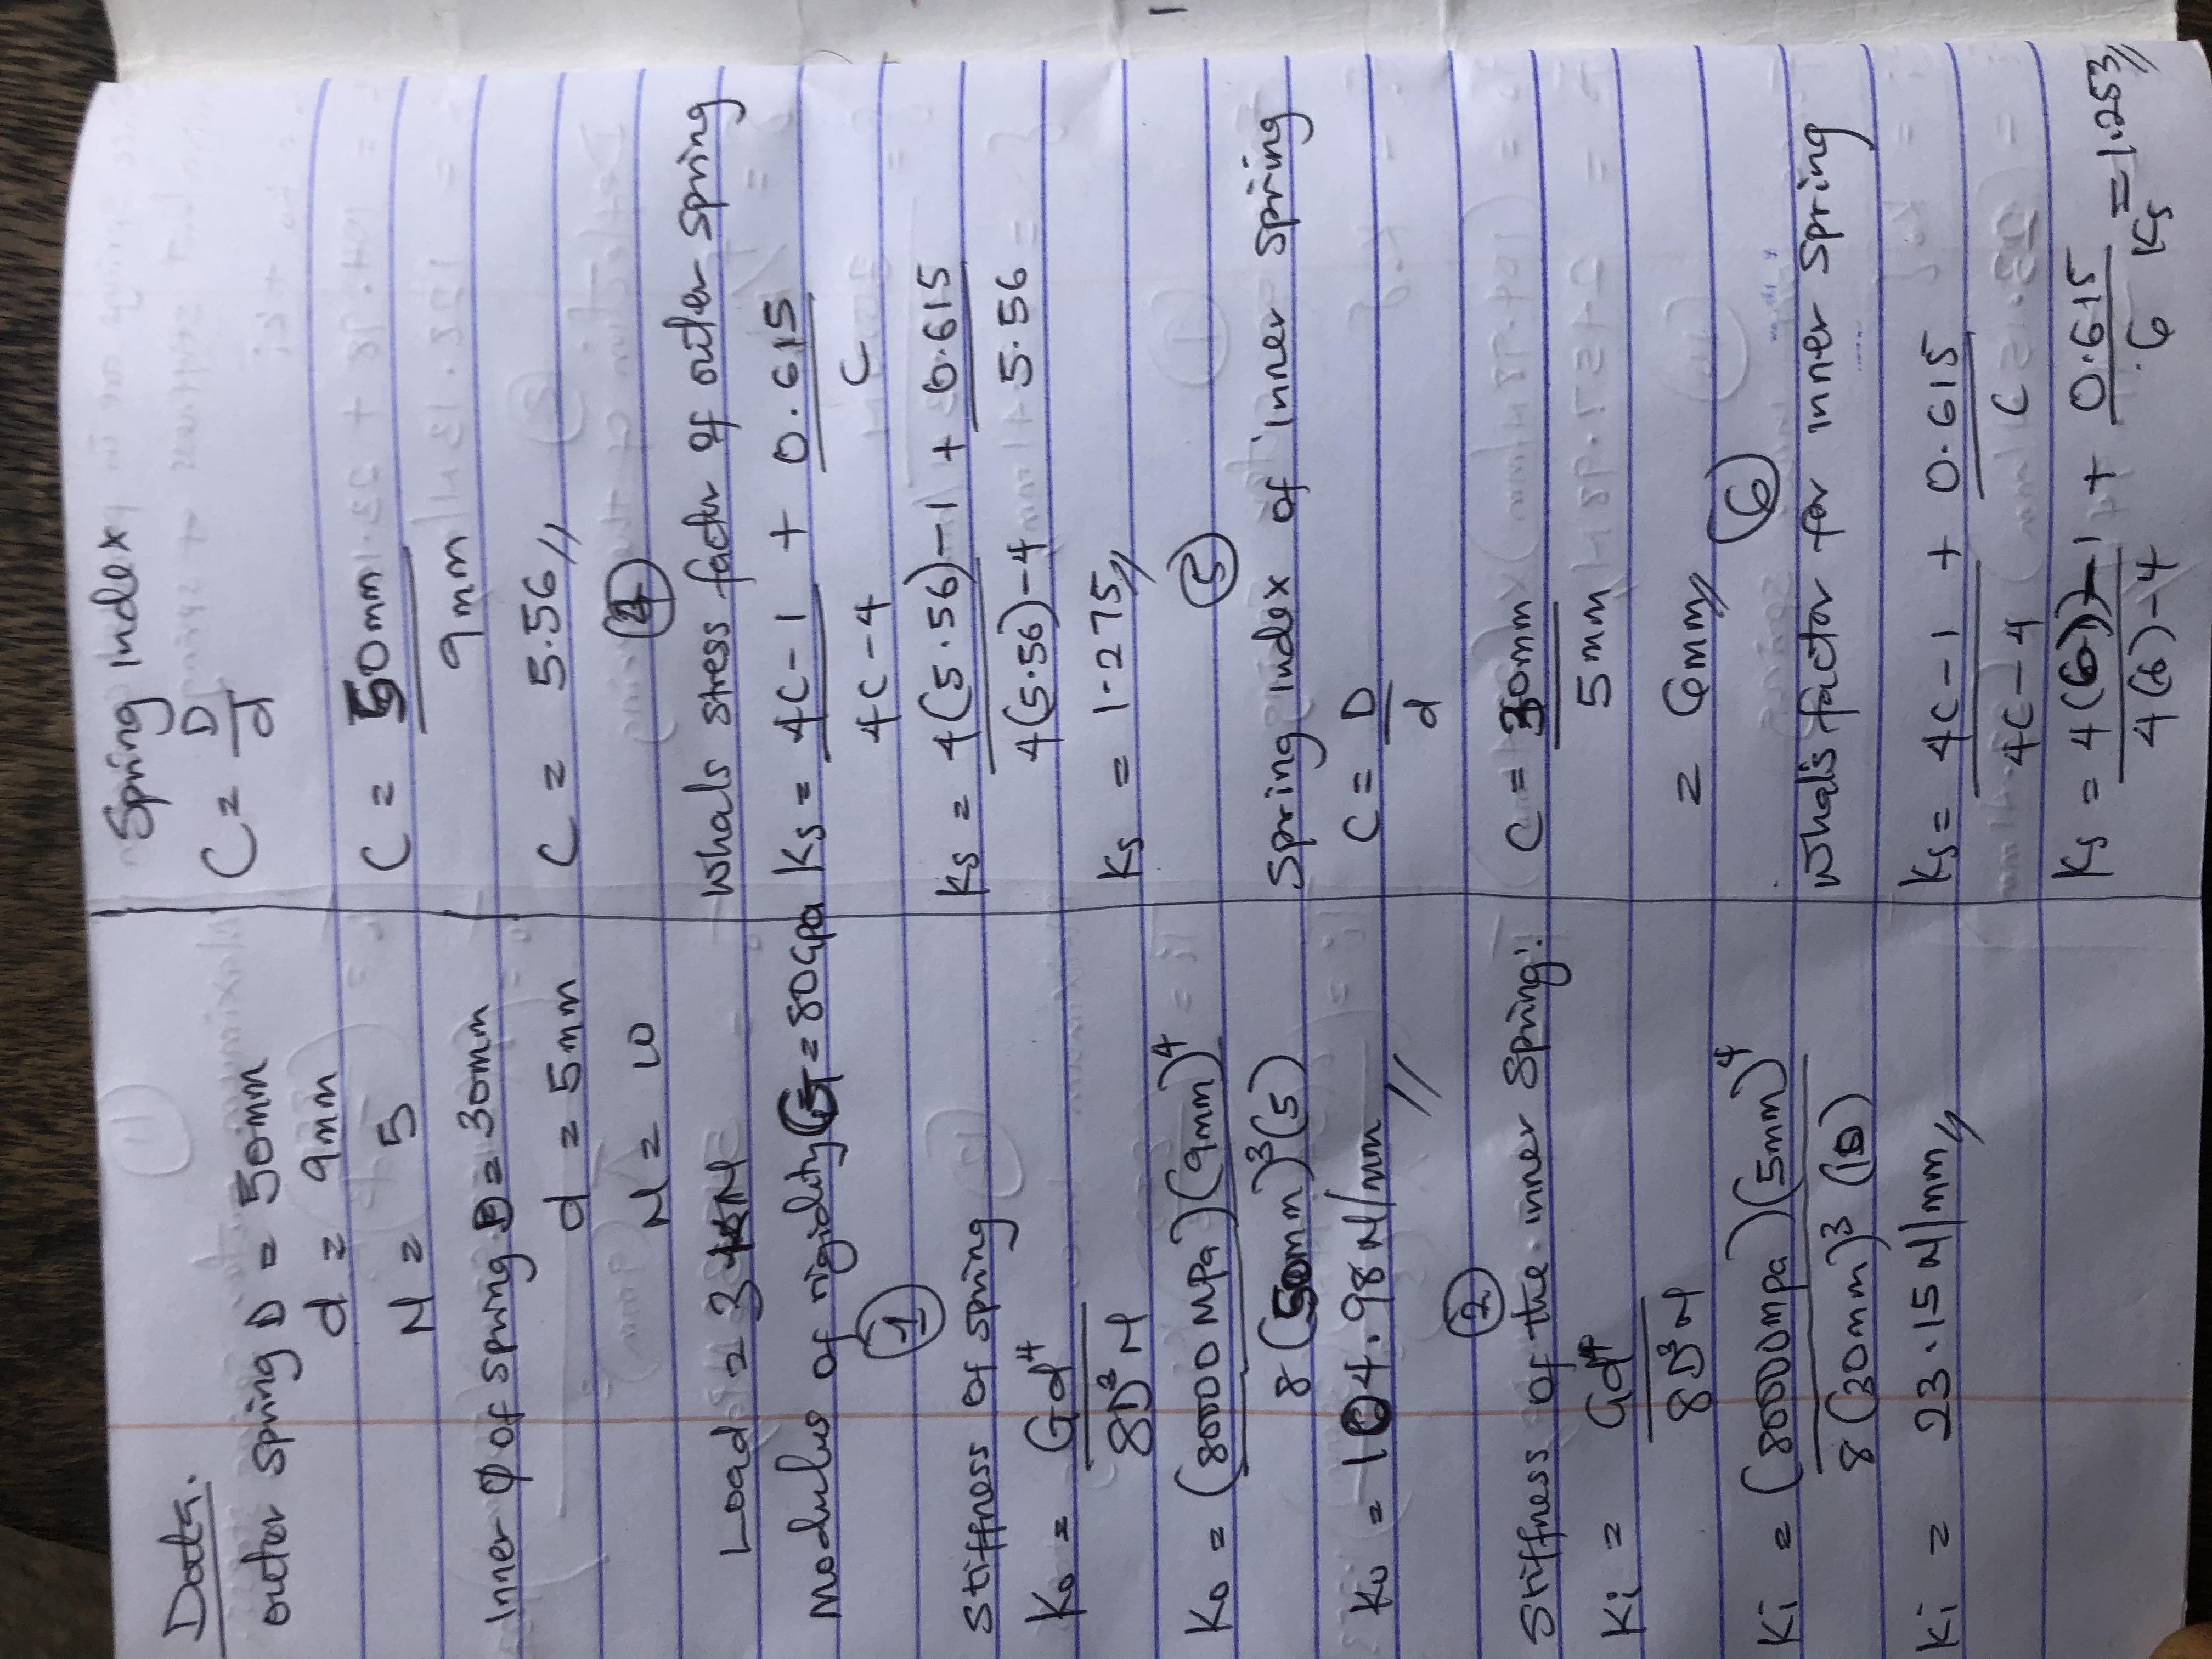 Data.
outor Spring D = 50mm
d = 9mm
N = 5
Inner φ of spring D = 30mm
d = 5mm
N = 10
Load = 3kN
Modulus of rigidity G = 80Gpa
①
Stiffness of spring
Ko = Gd⁴
8D³N
Ko = (80000 MPa)(9mm)⁴
8(50mm)³(5)
Ko = 104.98N/mm //
②
Stiffness of the inner spring:
Ki = Gd⁴
8D³N
Ki = (80000mpa)(5mm)⁴
8(30mm)³(10)
Ki = 23.15N/mm//
Spring Index
C = D/d
C = 50mm
9mm
C = 5.56//
④
Whals stress factor of outer spring
Ks = 4C-1 + 0.615
4C-4 C
Ks = 4(5.56)-1 + 0.615
4(5.56)-4 5.56
Ks = 1.275//
⑤
Spring Index of inner spring
C = D
d
C = 30mm
5mm
= 6mm//
⑥
Whal's factor for inner spring
Ks = 4C-1 + 0.615
4C-4 C
Ks = 4(6)-1 + 0.615 = 1.253//
4(6)-4 6 Ks